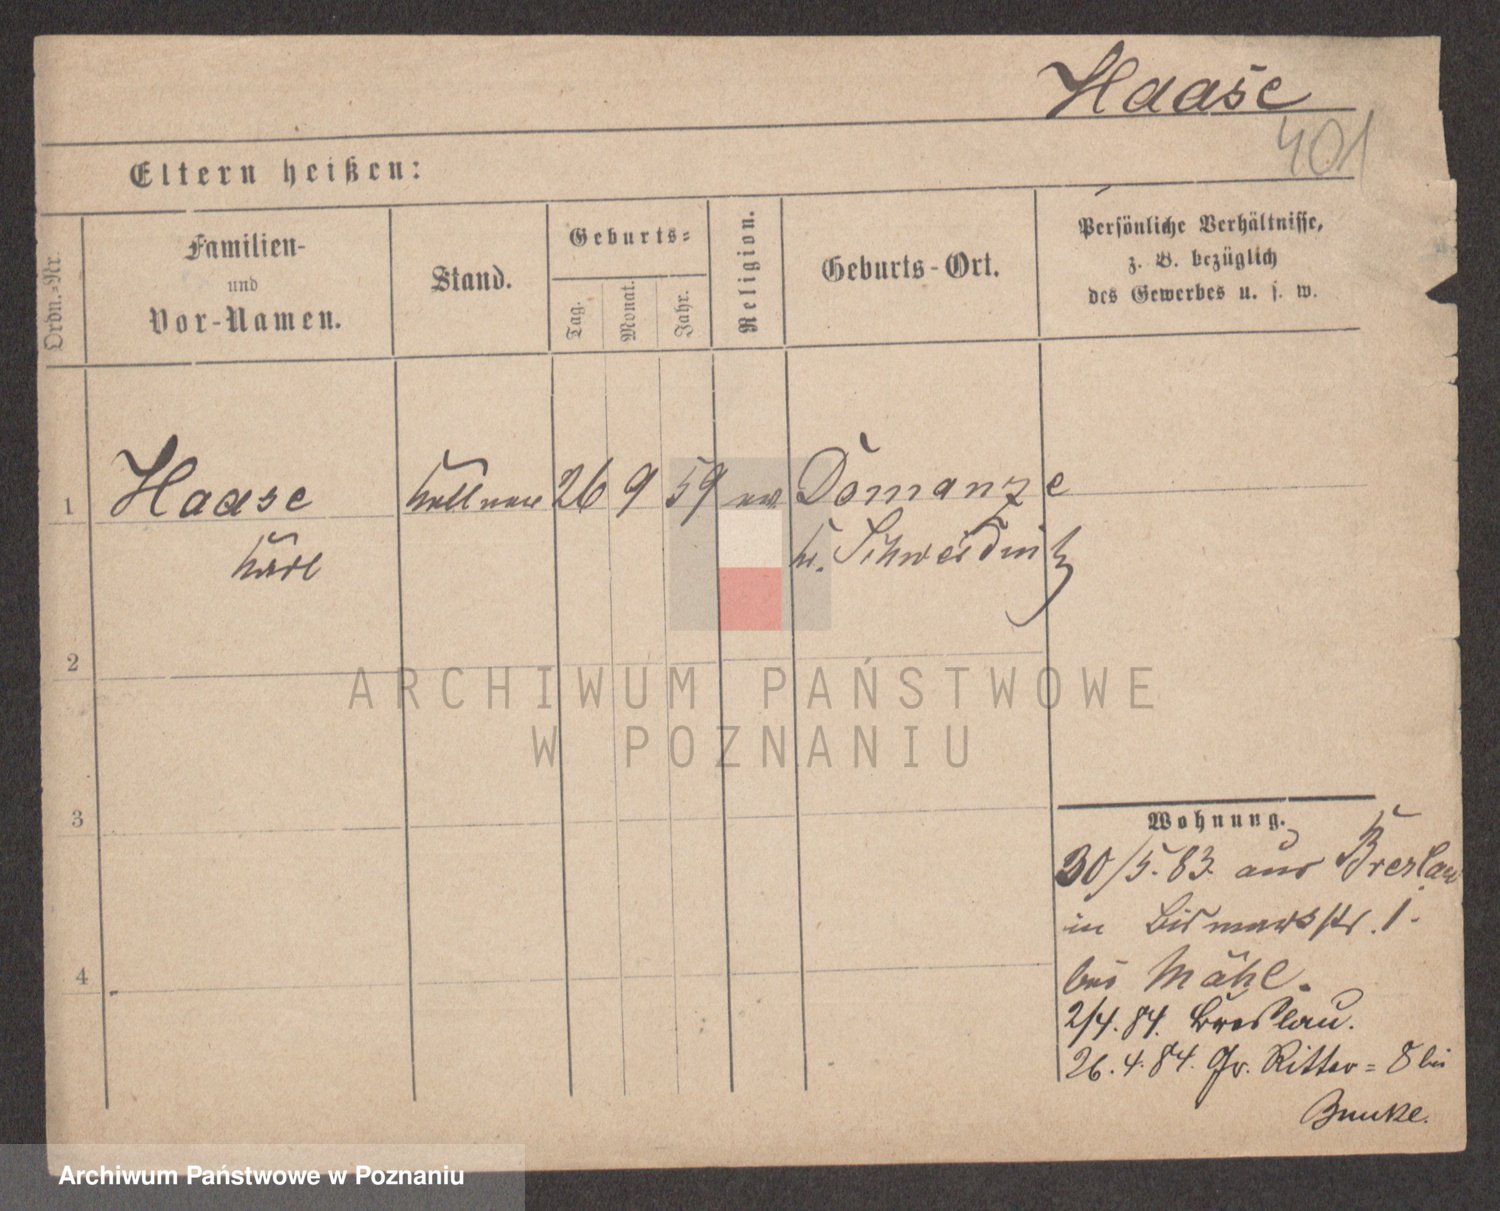 Haase
401
Eltern heißen:
Ordn.-Nr.
Familien-
und
Vor-Namen.
Stand.
Geburts-
Tag.
Monat.
Jahr.
Religion.
Geburts-Ort.
Persönliche Verhältnisse,
z. B. bezüglich
des Gewerbes u. s. w.
1 Haase Kellner 26 9 59 ev Domanze
Karl Kr. Schweidnitz
2
ARCHIWUM PAŃSTWOWE
W POZNANIU
3
Wohnung.
30/5. 83. aus Breslau
in Bismarkstr. 1.
bei Mähl.
4
2/4. 84. Breslau.
26. 4. 84. Gr. Ritter = 8 bei
Archiwum Państwowe w Poznaniu